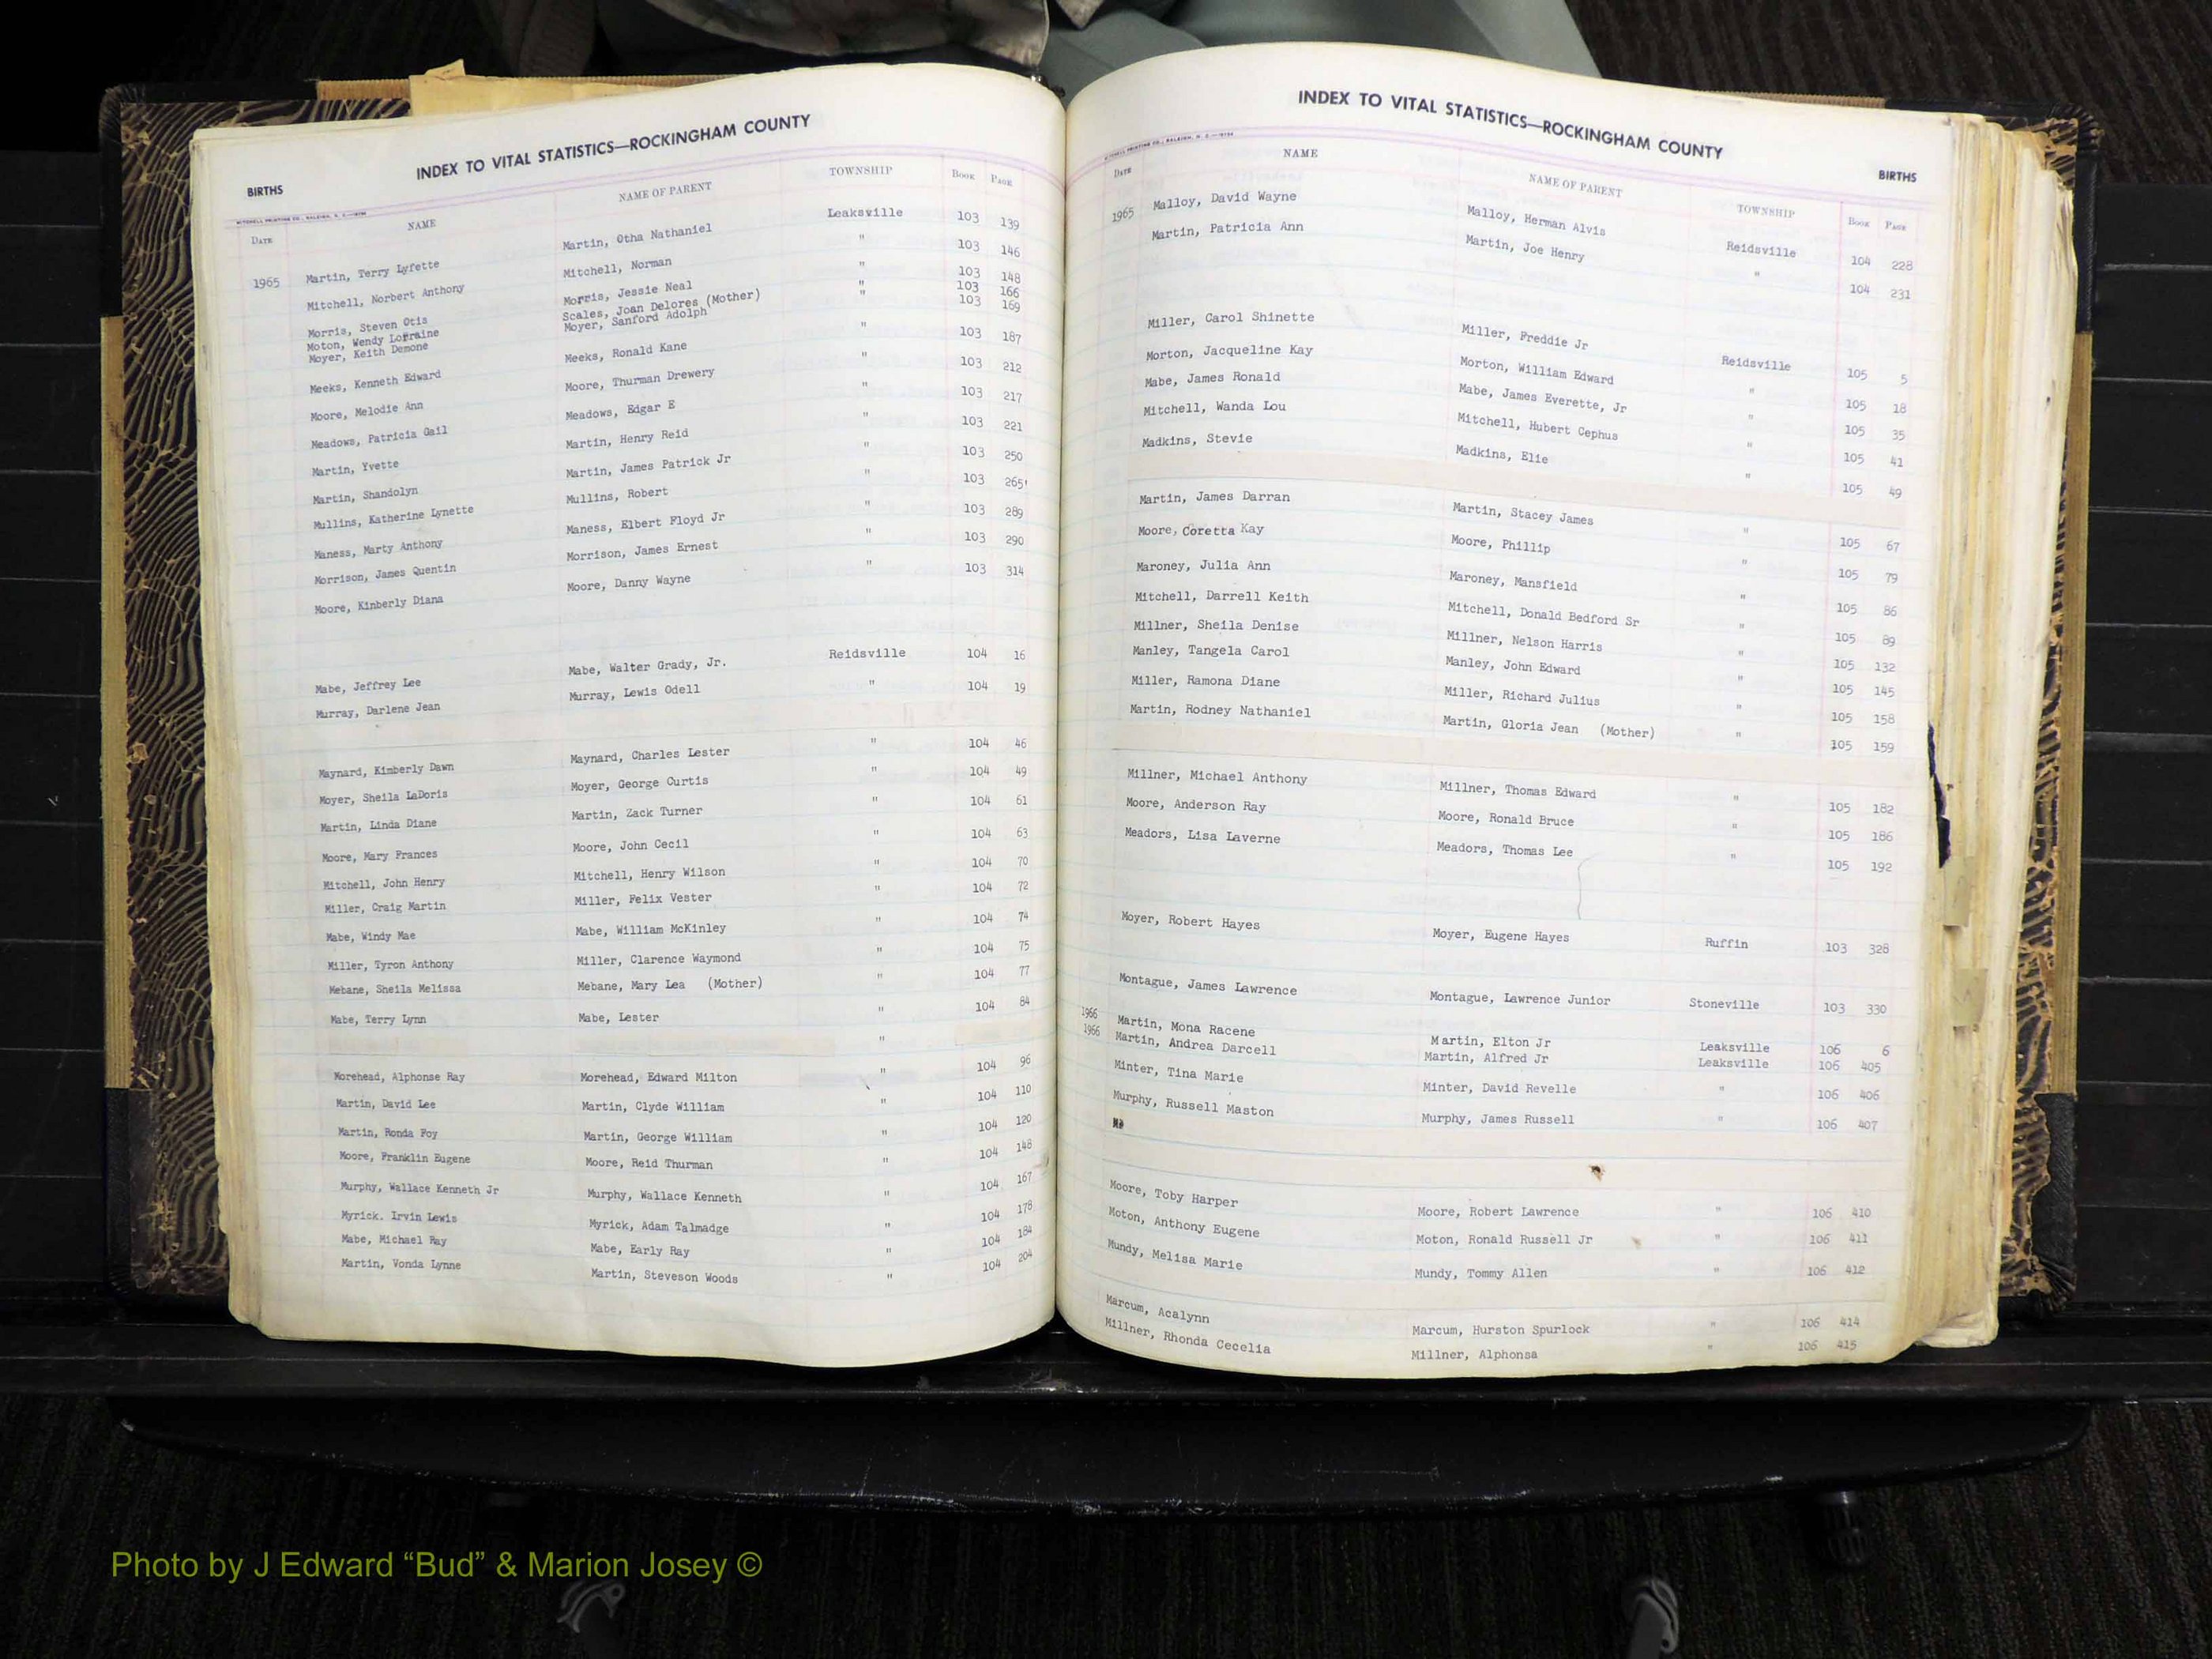 INDEX TO VITAL STATISTICS—ROCKINGHAM COUNTY
BIRTHS
MITCHELL PRINTING CO., RALEIGH, N. C.—19194
DATE NAME NAME OF PARENT TOWNSHIP BOOK PAGE
1965 Martin, Terry Lyfette Martin, Otha Nathaniel Leaksville 103 139
Mitchell, Norbert Anthony Mitchell, Norman " 103 146
Morris, Steven Otis Morris, Jessie Neal " 103 148
Moton, Wendy Lorraine Scales, Joan Delores (Mother) " 103 166
Moyer, Keith Demone Moyer, Sanford Adolph " 103 169
Meeks, Kenneth Edward Meeks, Ronald Kane " 103 187
Moore, Melodie Ann Moore, Thurman Drewery " 103 212
Meadows, Patricia Gail Meadows, Edgar E " 103 217
Martin, Yvette Martin, Henry Reid " 103 221
Martin, Shandolyn Martin, James Patrick Jr " 103 250
Mullins, Katherine Lynette Mullins, Robert " 103 265'
Maness, Marty Anthony Maness, Elbert Floyd Jr " 103 289
Morrison, James Quentin Morrison, James Ernest " 103 290
Moore, Kinberly Diana Moore, Danny Wayne " 103 314
Mabe, Jeffrey Lee Mabe, Walter Grady, Jr. Reidsville 104 16
Murray, Darlene Jean Murray, Lewis Odell " 104 19
Maynard, Kimberly Dawn Maynard, Charles Lester " 104 46
Moyer, Sheila LaDoris Moyer, George Curtis " 104 49
Martin, Linda Diane Martin, Zack Turner " 104 61
Moore, Mary Frances Moore, John Cecil " 104 63
Mitchell, John Henry Mitchell, Henry Wilson " 104 70
Miller, Craig Martin Miller, Felix Vester " 104 72
Mabe, Windy Mae Mabe, William McKinley " 104 74
Miller, Tyron Anthony Miller, Clarence Waymond " 104 75
Mebane, Sheila Melissa Mebane, Mary Lea (Mother) " 104 77
Mabe, Terry Lynn Mabe, Lester " 104 84
"
Morehead, Alphonse Ray Morehead, Edward Milton " 104 96
Martin, David Lee Martin, Clyde William " 104 110
Martin, Ronda Foy Martin, George William " 104 120
Moore, Franklin Eugene Moore, Reid Thurman " 104 148
Murphy, Wallace Kenneth Jr Murphy, Wallace Kenneth " 104 167
Myrick. Irvin Lewis Myrick, Adam Talmadge " 104 178
Mabe, Michael Ray Mabe, Early Ray " 104 184
Martin, Vonda Lynne Martin, Steveson Woods " 104 204
INDEX TO VITAL STATISTICS—ROCKINGHAM COUNTY
BIRTHS
MITCHELL PRINTING CO., RALEIGH, N. C.—19194
DATE NAME NAME OF PARENT TOWNSHIP BOOK PAGE
1965 Malloy, David Wayne Malloy, Herman Alvis Reidsville 104 228
Martin, Patricia Ann Martin, Joe Henry " 104 231
Miller, Carol Shinette Miller, Freddie Jr Reidsville 105 5
Morton, Jacqueline Kay Morton, William Edward " 105 18
Mabe, James Ronald Mabe, James Everette, Jr 105 35
Mitchell, Wanda Lou Mitchell, Hubert Cephus " 105 41
Madkins, Stevie Madkins, Elie " 105 49
Martin, James Darran Martin, Stacey James " 105 67
Moore, Coretta Kay Moore, Phillip " 105 79
Maroney, Julia Ann Maroney, Mansfield " 105 86
Mitchell, Darrell Keith Mitchell, Donald Bedford Sr " 105 89
Millner, Sheila Denise Millner, Nelson Harris " 105 132
Manley, Tangela Carol Manley, John Edward " 105 145
Miller, Ramona Diane Miller, Richard Julius " 105 158
Martin, Rodney Nathaniel Martin, Gloria Jean (Mother) " 105 159
Millner, Michael Anthony Millner, Thomas Edward " 105 182
Moore, Anderson Ray Moore, Ronald Bruce " 105 186
Meadors, Lisa Laverne Meadors, Thomas Lee " 105 192
Moyer, Robert Hayes Moyer, Eugene Hayes Ruffin 103 328
Montague, James Lawrence Montague, Lawrence Junior Stoneville 103 330
1966 Martin, Mona Racene Martin, Elton Jr Leaksville 106 6
1966 Martin, Andrea Darcell Martin, Alfred Jr Leaksville 106 405
Minter, Tina Marie Minter, David Revelle " 106 406
Murphy, Russell Maston Murphy, James Russell " 106 407
Moore, Toby Harper Moore, Robert Lawrence " 106 410
Moton, Anthony Eugene Moton, Ronald Russell Jr " 106 411
Mundy, Melisa Marie Mundy, Tommy Allen " 106 412
Marcum, Acalynn Marcum, Hurston Spurlock " 106 414
Millner, Rhonda Cecelia Millner, Alphonsa " 106 415
Photo by J Edward “Bud” & Marion Josey ©